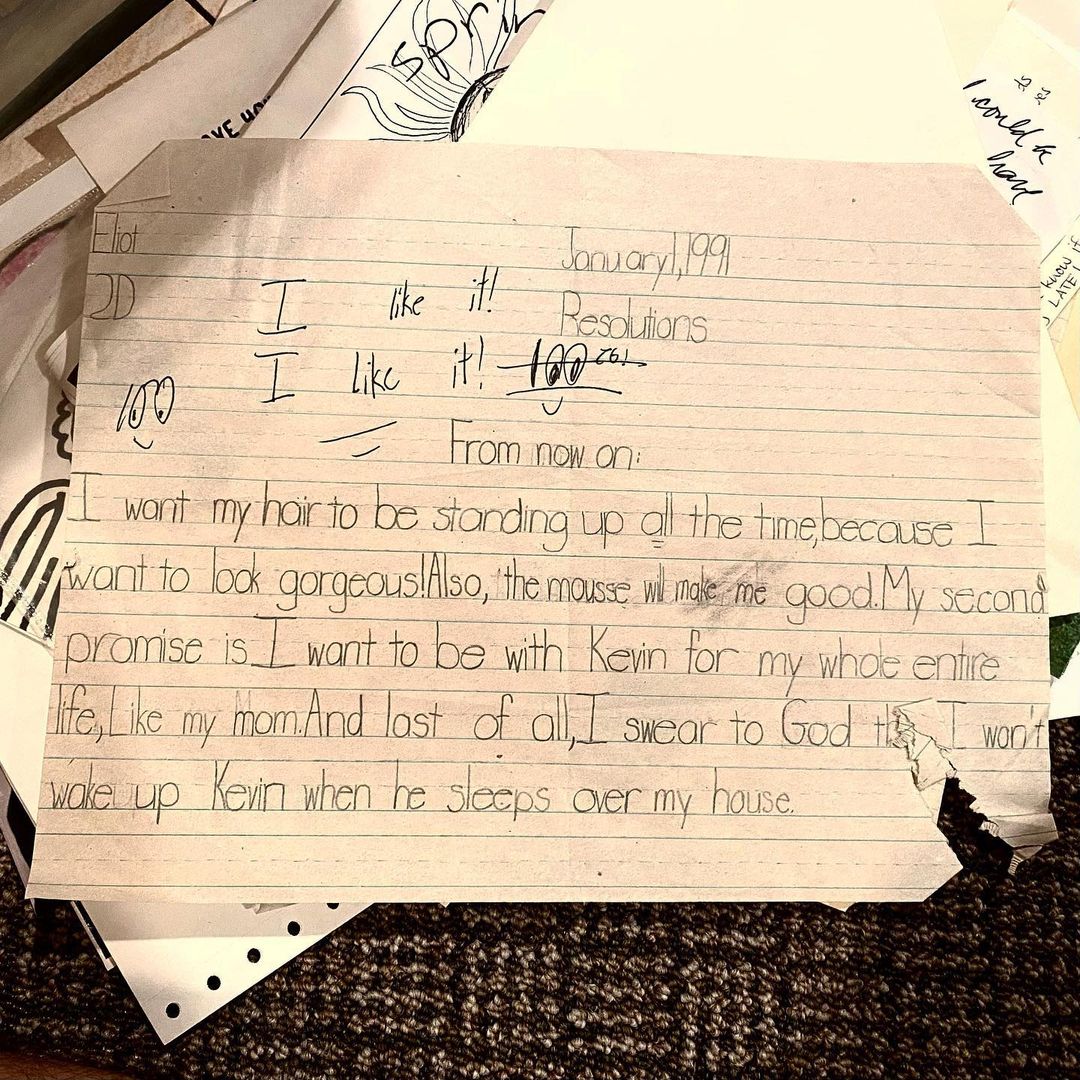 Spri
I could
have
Eliot
January 1, 1991
2D
I like it!
Resolutions
I like it! 100
100
From now on:
I want my hair to be standing up all the time, because I
want to look gorgeous! Also, the mousse will make me good. My second
promise is I want to be with Kevin for my whole entire
life, Like my mom. And last of all, I swear to God I won't
wake up Kevin when he sleeps over my house.
KNOW if
LATE